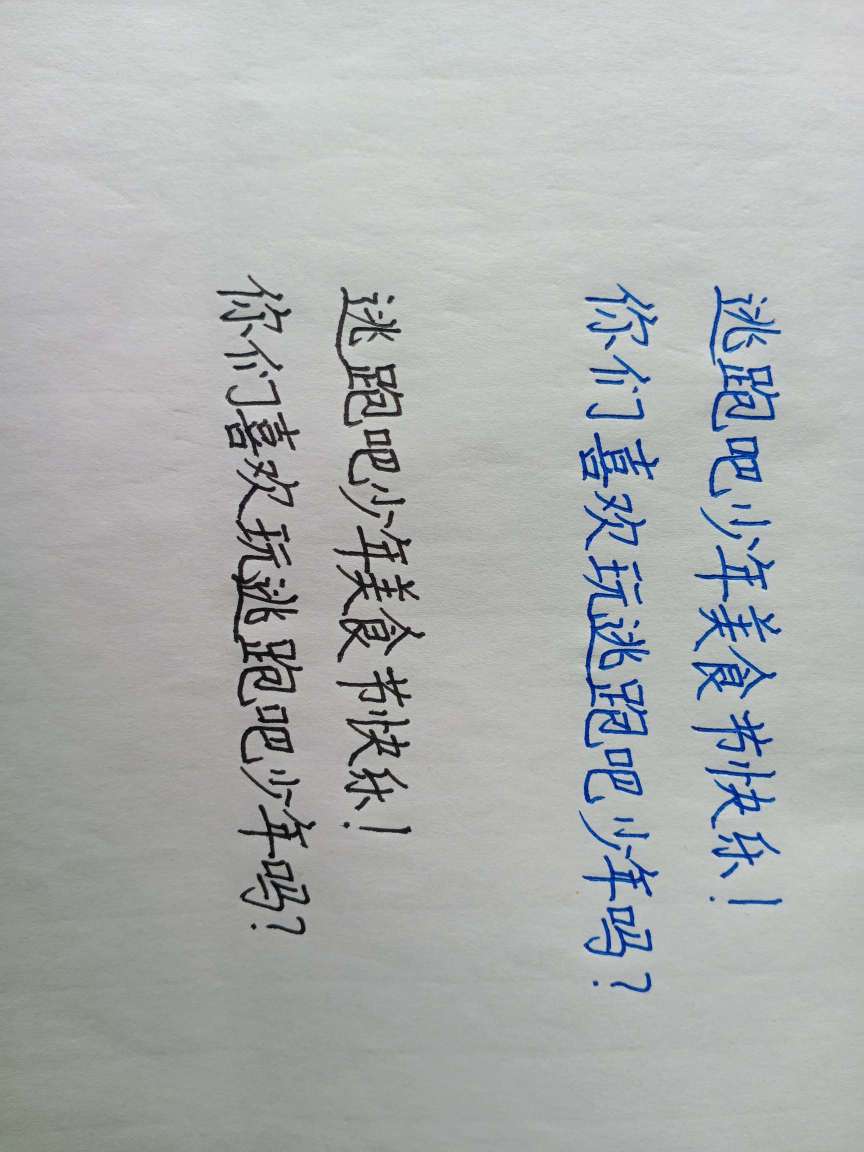 逃跑吧少年美食节快乐!
你们喜欢玩逃跑吧少年吗?
逃跑吧少年美食节快乐!
你们喜欢玩逃跑吧少年吗?